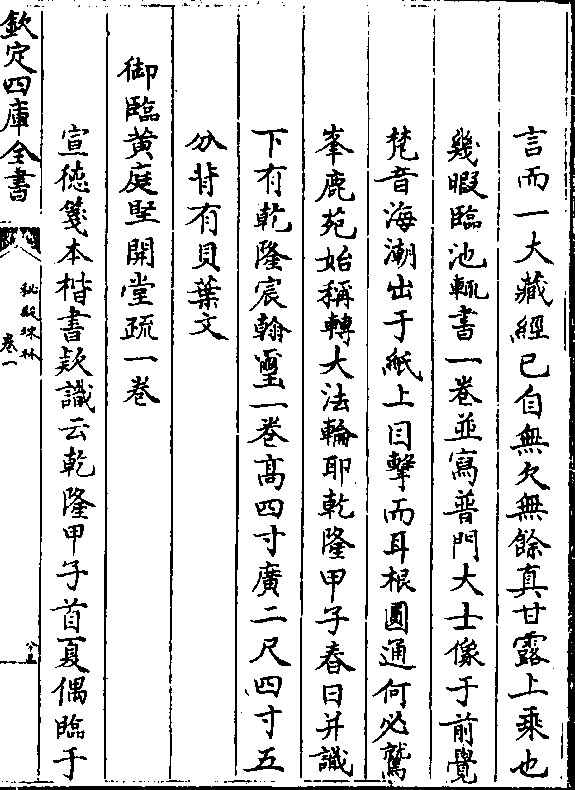 言而一大藏經已自無欠無餘真甘露上乘也
幾暇臨池輒書一卷並寫普門大士像于前覺
梵音海潮出于紙上目擊而耳根圓通何必鷲
峯鹿苑始稱轉大法輪耶乾隆甲子春日并識
下有乾隆宸翰璽一卷高四寸廣二尺四寸五
分背有貝葉文
御臨黃庭堅開堂疏一卷
宣徳箋本楷書款識云乾隆甲子首夏偶臨于
欽定四庫全書
秘殿珠林
卷一